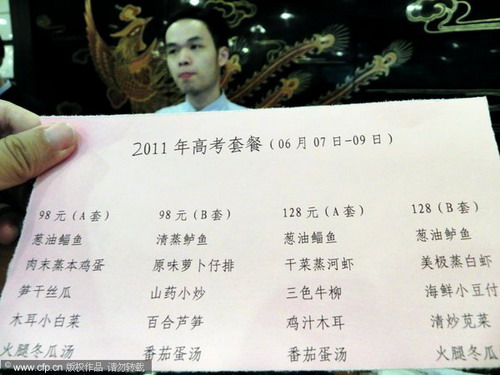 2011年高考套餐（06月07日-09日）
98元（A套） 98元（B套） 128元（A套） 128（B套）
葱油鲻鱼 清蒸鲈鱼 葱油鲻鱼 葱油鲈鱼
肉末蒸本鸡蛋 原味萝卜仔排 干菜蒸河虾 美极蒸白虾
笋干丝瓜 山药小炒 三色牛柳 海鲜小豆付
木耳小白菜 百合芦笋 鸡汁木耳 清炒苋菜
火腿冬瓜汤 番茄蛋汤 番茄蛋汤 火腿冬瓜汤
www.cfp.cn 版权作品 请勿转载